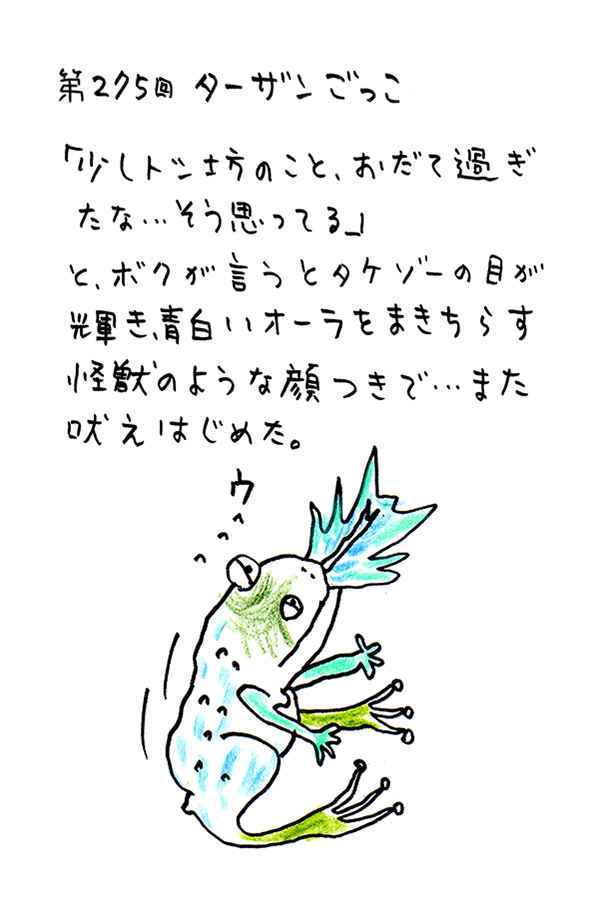 第275回 ターザンごっこ
「少しトン坊のこと、おだて過ぎ
たな…そう思ってる」
と、ボクが言うとタケゾーの目が
輝き、青白いオーラをまきちらす
怪獣のような顔つきで…また
吠えはじめた。
ウ